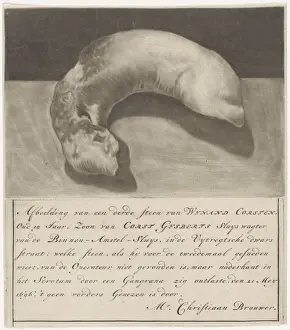 Afbeelding van een derde steen van WYNAND CORSTEN.
Oud 19 Jaar, Zoon van CORST GYSBERTS Sluys wagter
van de Binnen-Amstel-Sluys, in de Uytregtsche dwars
straat; welke steen, als hy voor de tweedemaal gesneden
wiert, van de Operateur niet gevonden is, maar naderhant in
het Scrotum door een Gangrena zig ontlaste, den 21 Mey
1696; 't geen voorders Genesen is door
Mr. Christiaan Brouwer.